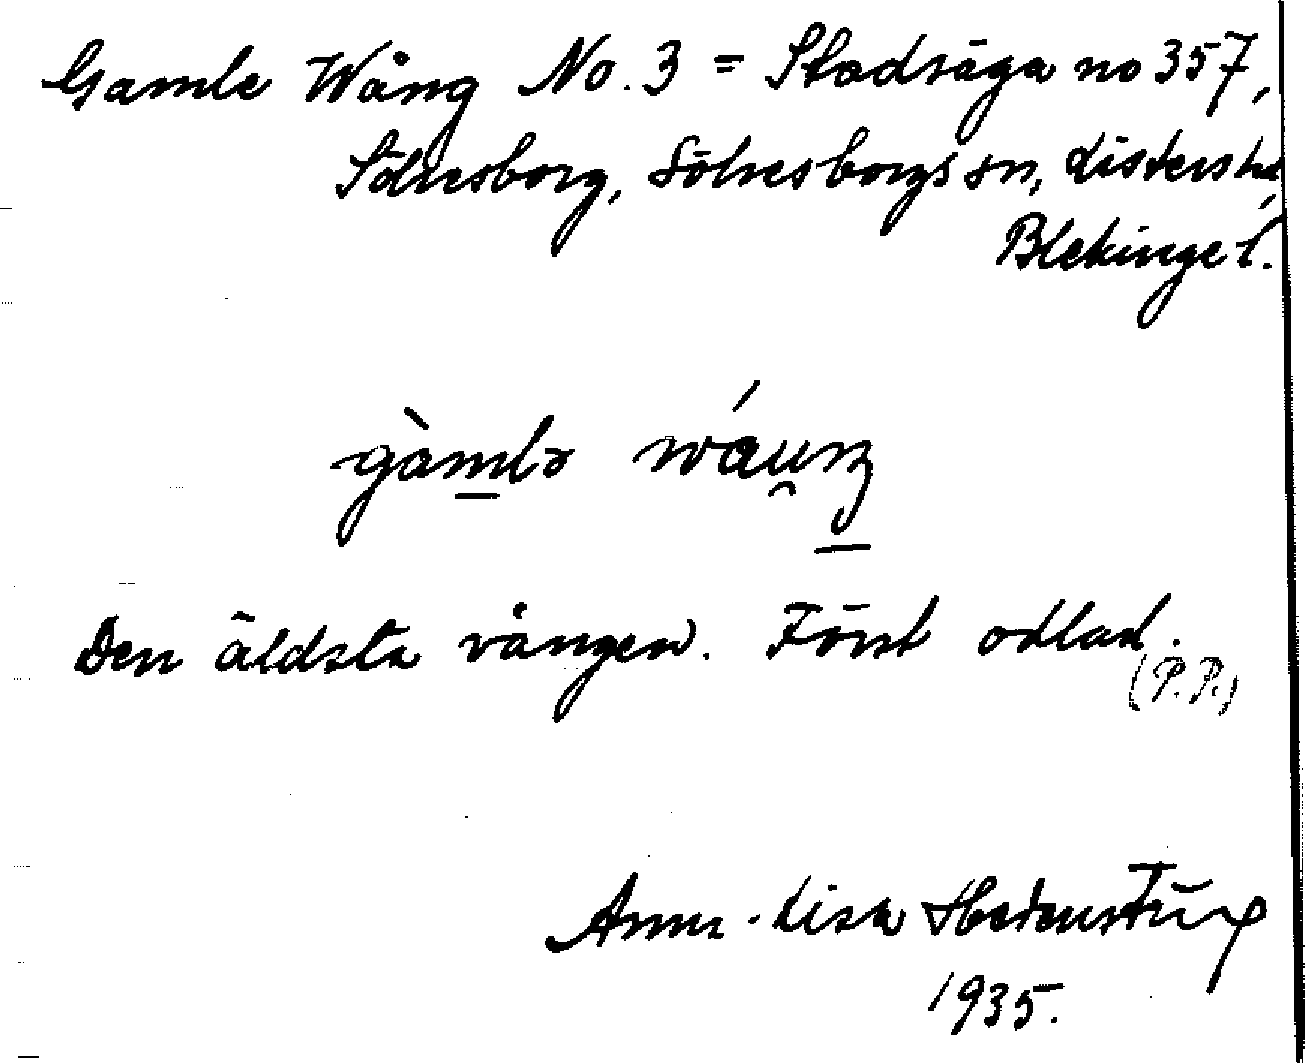 Gamle Wång No. 3 = Stadsäga no 357,
Sölvesborg, Sölvesborgs sn, Listers hd,
Blekinge l.
gàmlə wáu̯ŋ
Den äldsta vången. Först odlad.
(P.P.)
Anna-Lisa
1935.